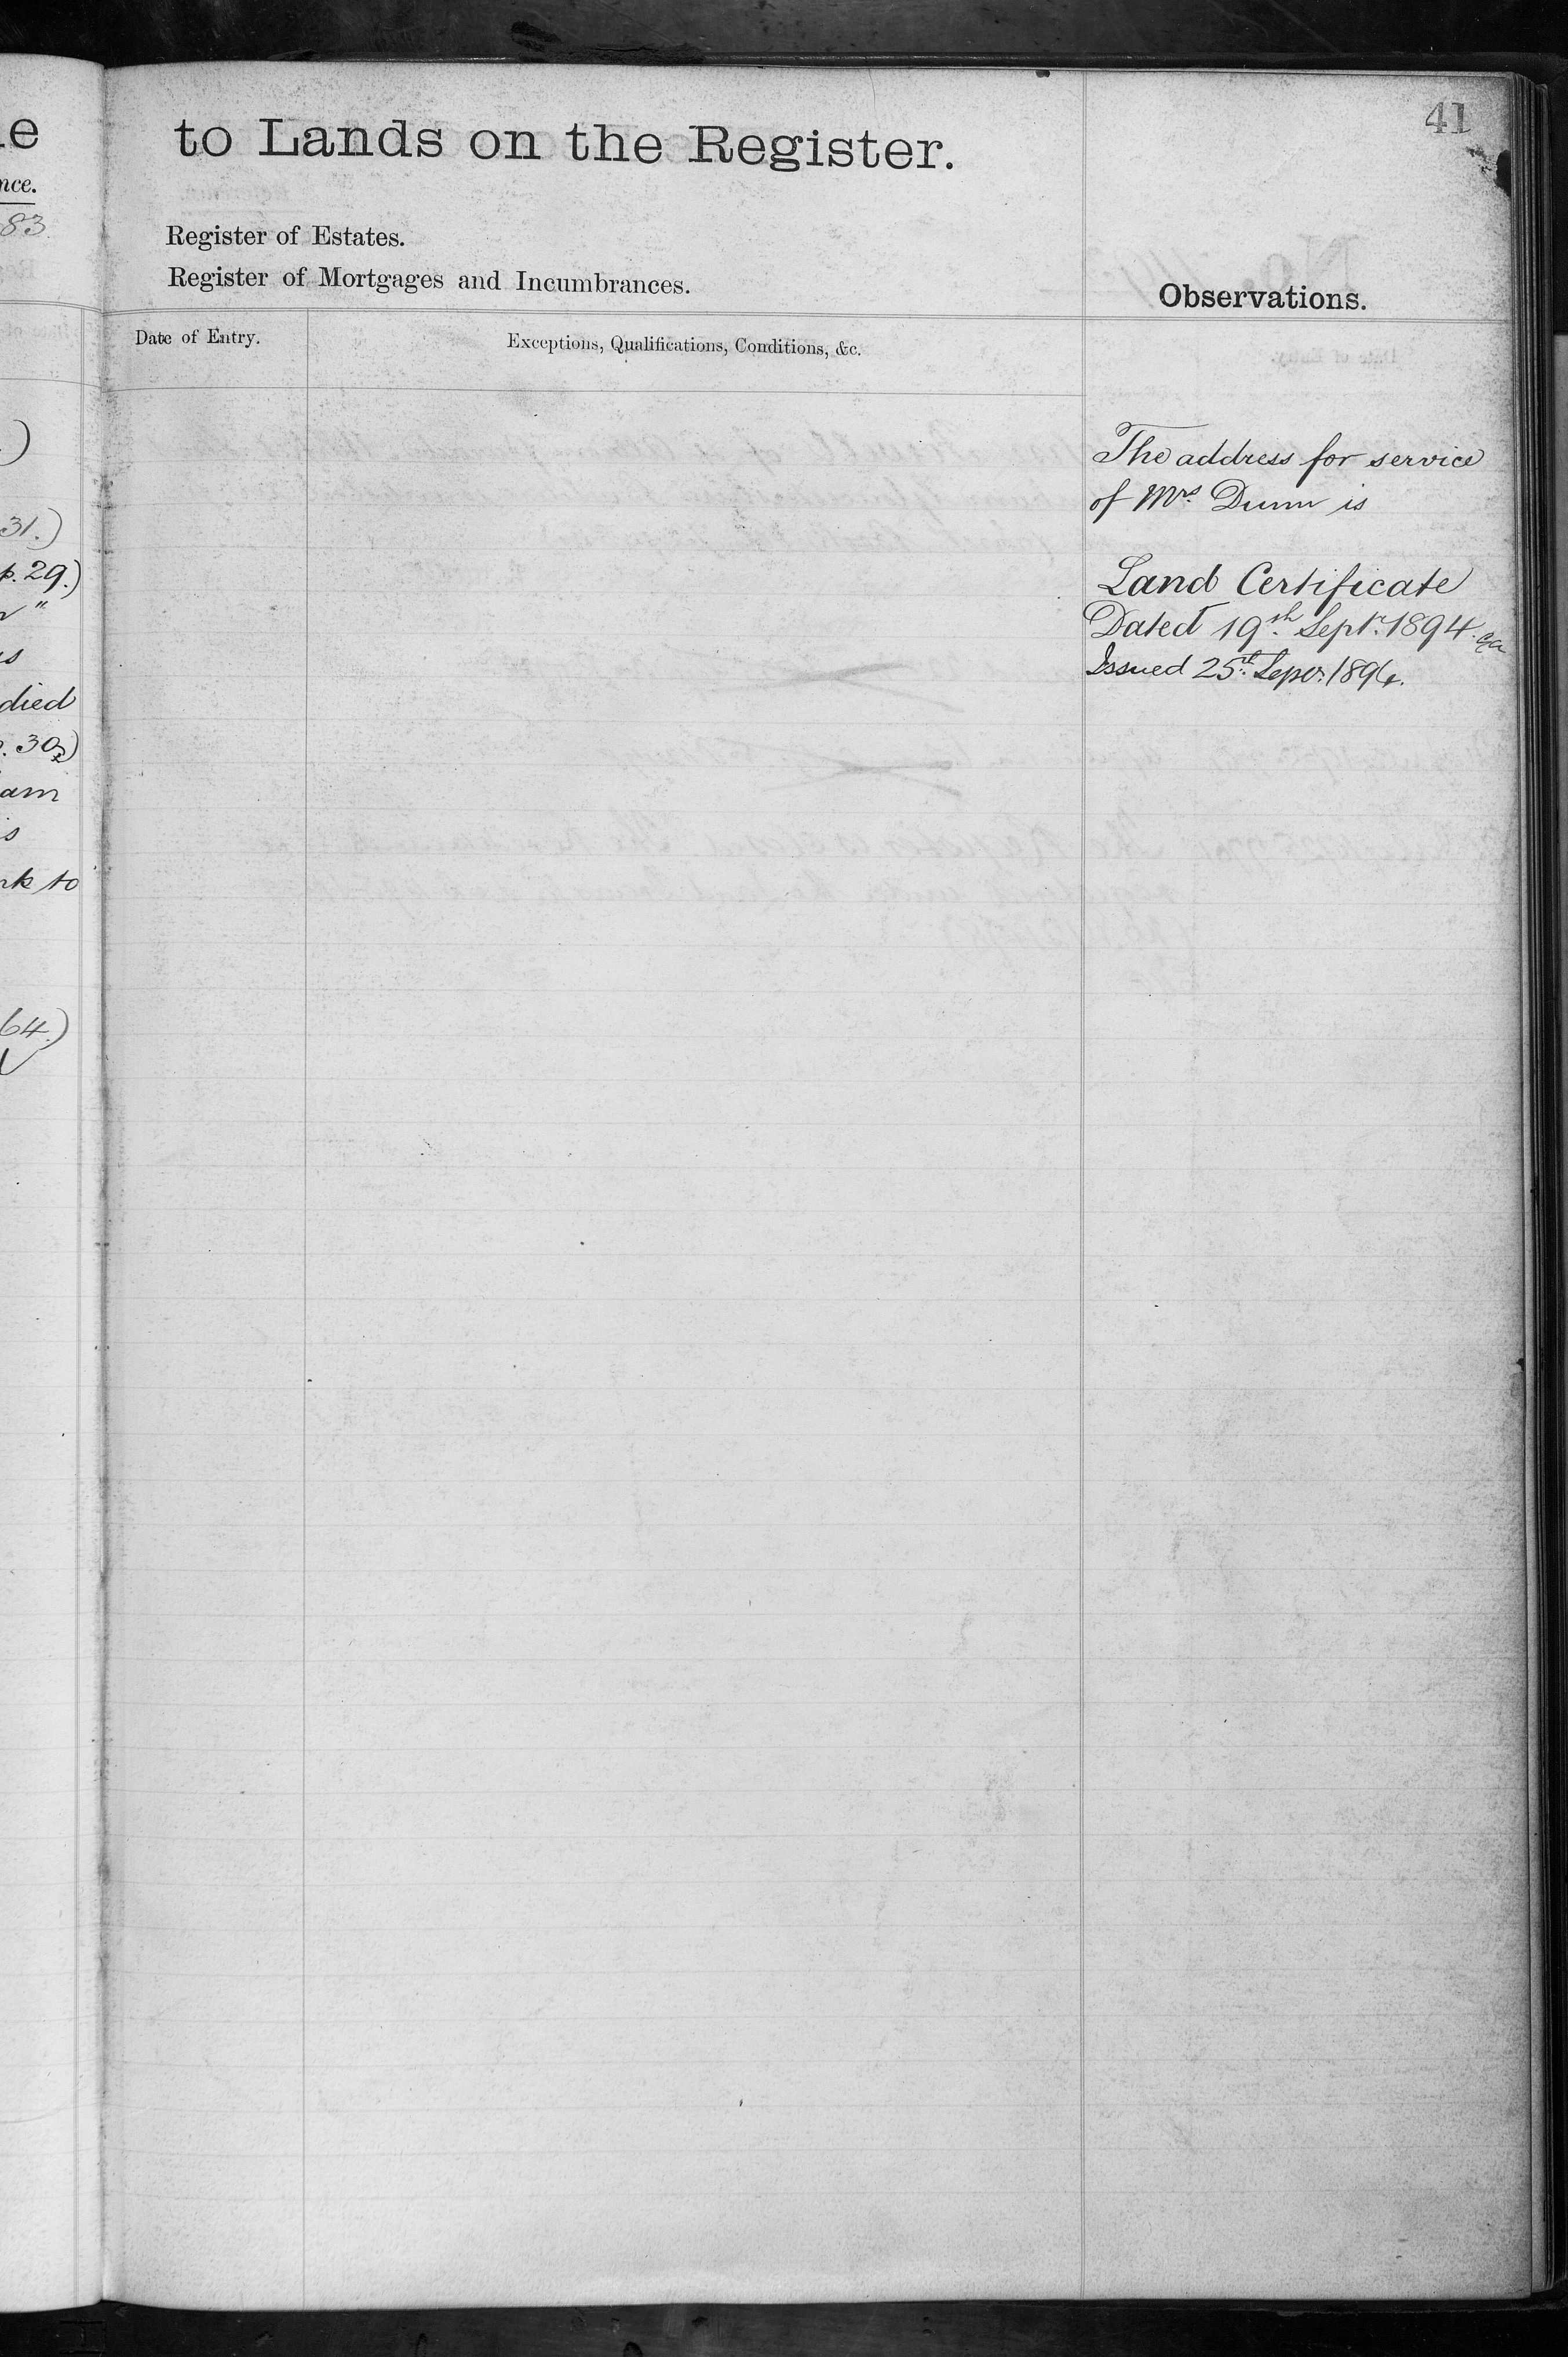 41
to Lands on the Register.
Register of Estates.
Register of Mortgages and Incumbrances.
Observations.
Date of Entry.
Exceptions, Qualifications, Conditions, &c.
The address for service
of Mrs. Dunn is
Land Certificate
Dated 19th Septr. 1894.
Issued 25th Sepr. 1894.
nce.
83
31.)
p. 29.)
died
. 30
am
rk to
64.)